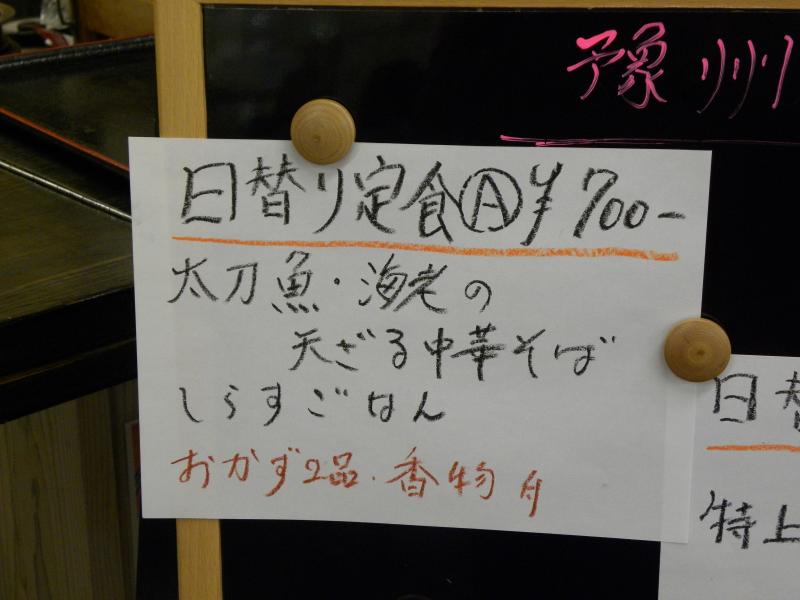 予象 州
日替り定食Ⓐ¥700-
太刀魚・海老の
天ざる中華そば
しらすごはん
おかず2品・香物付
日替
特上